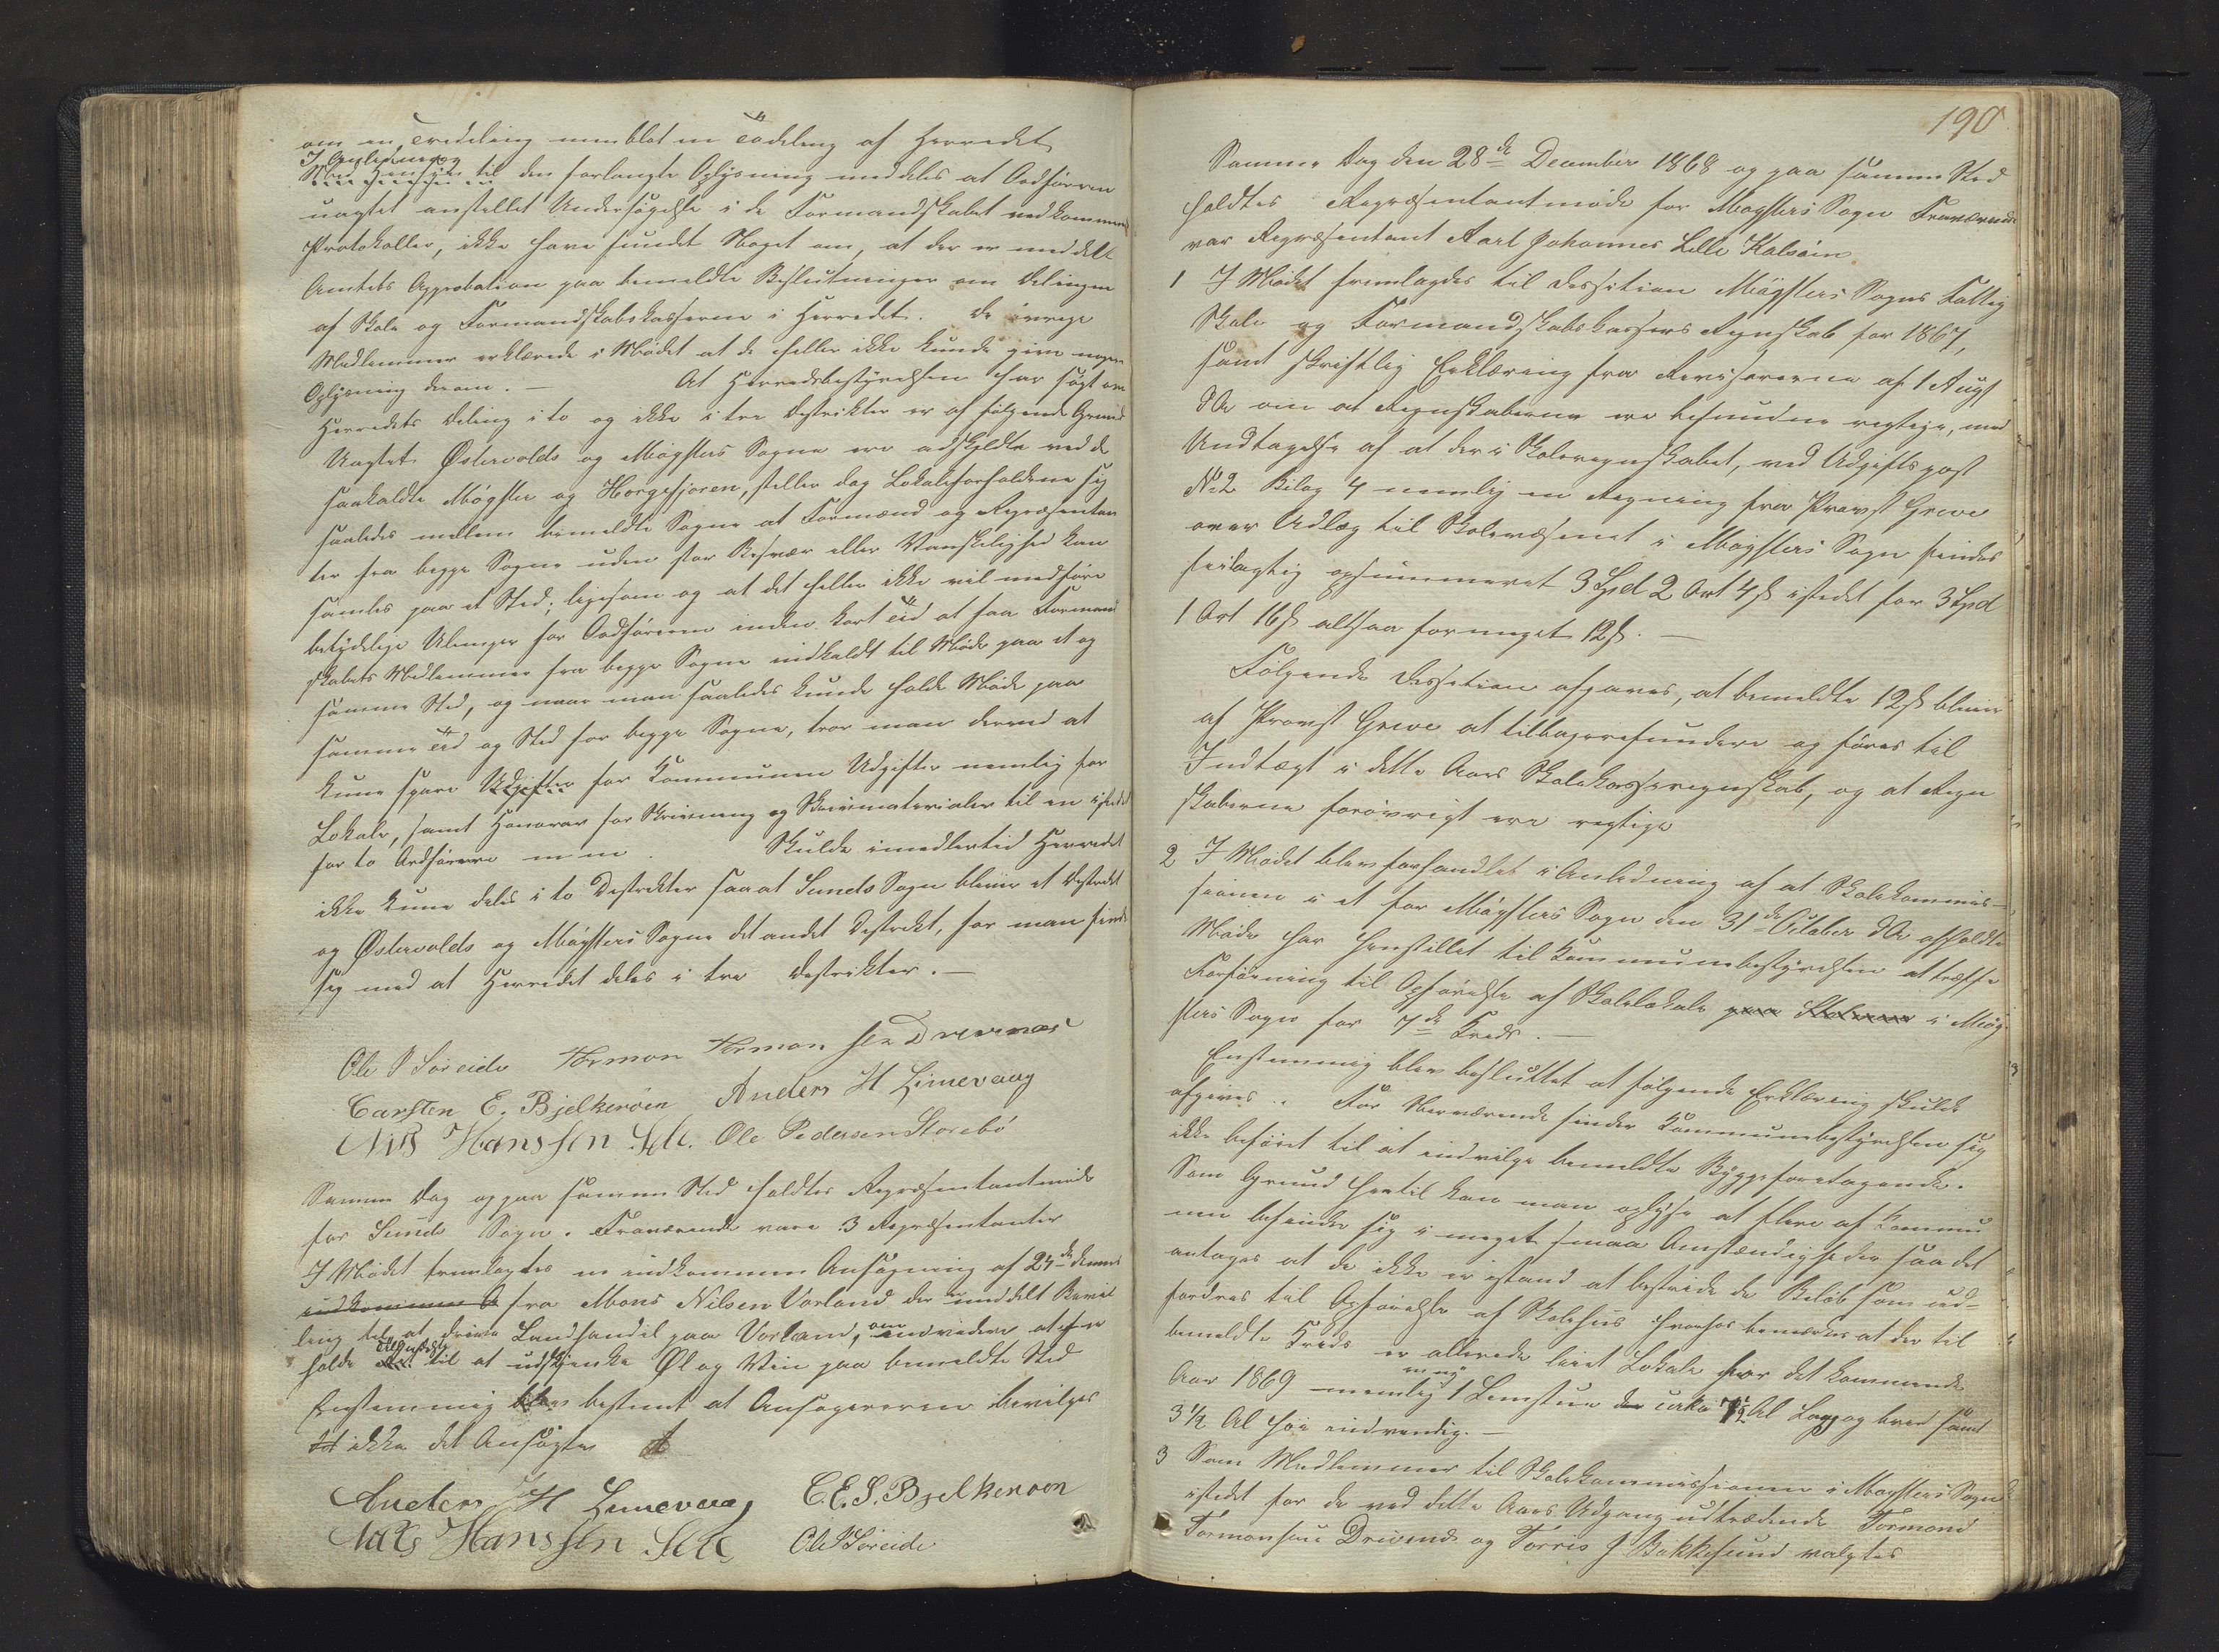 om en Tredeling men blot en Todeling af Herredet
I Anledning
Med Hensyn til den forlangte Oplysning meddeles at Ordføreren
uagtet anstillet Undersøgelse i de Formandskabet vedkommende
Protokoller, ikke have fundet Noget om, at der er meddelt
Amtets Approbation paa bemeldte Beslutninger om Delingen
af Skole og Formandskabskasserne i Herredet. De øvrige
Medlemmer erklærede i Mødet at de heller ikke kunde give nogen
Oplysning derom. — At Herredsbestyrelsen har søgt om
Herredets Deling i to og ikke i tre Destrikter er af følgende Grund
Uagtet Østervolds og Møgsters Sogne ere adskildte ved de
saakaldte Møgster og Horgefjoren, stiller dog Lokaleforholdene sig
saaledes mellem bemeldte Sogne at Formænd og Repræsentan
ter fra begge Sogne uden stor Besvær eller Vanskelighed kan
samles paa et Sted; ligesom og at det heller ikke vil medføre
betydelige Ulemper for Ordføreren inden kort Tid at faa Formand
skabets Medlemmer fra begge Sogne indkaldt til Møde paa et og
samme Sted, og naar man saaledes kunde holde Møde paa
samme Tid og Sted for begge Sogne, tror man derved at
kunne spare Udgifter for Kommunen Udgifter nemlig for
Lokale, samt Honorar for Skrivning og Skrivematerialer til en istedet
for to Ordførere m m. Skulde imedlertid Herredet
ikke kunne deles i to Destrikter saa at Sunds Sogn bliver et Destrikt
og Østervolds og Møgsters Sogne det andet Destrikt, har man finde
sig med at Herredet deles i tre Destrikter. —
Ole P Søreide Tormon Tormon sen Drivenæs
Carsten E. Bjelkerøen Anders H Limevaag
Nils Hanssen Sele. Ole Pedersen Storebø
Samme Dag og paa samme Sted holdtes Repræsentantmøde
for Sunds Sogn. Fraværende vare 3 Repræsentanter
I Mødet fremlagdes en indkommen Ansøgning af 24de dennes
indkommen A fra Mons Nilsen Vorland der er meddelt Bevil
ling til at drive Landhandel paa Vorland, om endvidere at er
holde Tilladelse til at udskjenke Øl og Vin paa bemeldte Sted
Enstemmig blev bestemt at Ansøgeren bevilges
ikke det Ansøgte
Anders H Limevaag C.E.S. Bjelkerøen
Nils Hanssen Sele Ole P Søreide
190
Samme Dag den 28de December 1868 og paa samme Sted
holdtes Repræsentantmøde for Møgsters Sogn Fraværende
var Repræsentant Aarl Johannes Lille Kalsøin
1 I Mødet fremlagdes til Dessition Møgsters Sogns Fattig
Skole og Formandskabskassers Regnskab for 1867,
samt skriftlig Erklæring fra Revisorerne af 1 Augst
d A om at Regnskaberne ere befundne regtige, med
Undtagelse af at der i Skoleregnskabet, ved Udgiftspost
No 2 Bilag 4 nemlig en Regning fra Provst Greve
over Udlæg til Skolevæsenet i Møgsters Sogn findes
feilagtig opsummeret 3 Spd 2 Ort 4 s istedet for 3 Spd
1 Ort 16 s altsaa formeget 12 s. —
Følgende Dessition afgaves, at bemeldte 12 s bliver
af Provst Greve at tilbagerefundere og føres til
Indtægt i dette Aars Skolekasseregnskab, og at Regn
skaberne forøvrigt ere regtige
2 I Mødet blev forhandlet i Anledning af at Skolekommis-
sionen i et for Møgsters Sogn den 31de October d A afholdt
Møde har henstillet til Kommunebestyrelsen at træffe
Forføining til Opførelse af Skolelokale paa i Møg-
sters Sogn for 7de Kreds. —
Enstemmig blev besluttet at følgende Erklæring skulde
afgives. For Nærværende finder Kommunebestyrelsen sig
ikke beføiet til at indvilge bemeldte Byggeforetagende.
Som Grund hertil kan man oplyse at flere af Kommu
nen befinder sig i meget smaa Omstændigheder saa det
antages at de ikke er istand at bestride de Beløb som ud-
fordres til Opførelse af Skolehus hvorhos bemærkes at der til
bemeldte Kreds er allerede leiet Lokale for det kommende
Aar 1869 nemlig ny 1 Lemstue der cirka 7½ Al Lang og bred samt
3½ Al høi indvendig. —
3 Som Medlemmer til Skolekommissionen i Møgsters Sogn
istedet for de ved dette Aars Udgang udtrædende Tormond
Tormonsen Drivenæs og Torris J Bakkesund valgtes